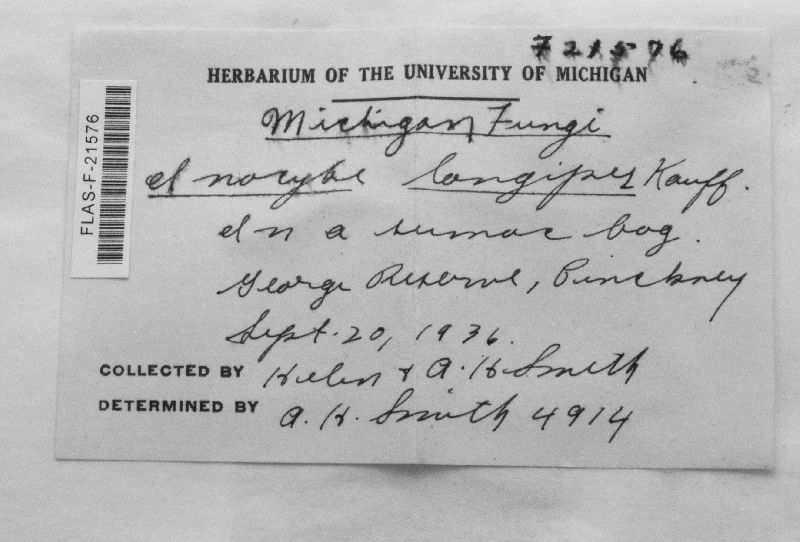 F21576
HERBARIUM OF THE UNIVERSITY OF MICHIGAN
Michigan Fungi
Inocybe longipes Kauff.
In a sumac bog.
George Reserve, Pinckney
Sept. 20, 1936.
COLLECTED BY Helen & A. H. Smith
DETERMINED BY A. H. Smith 4914
FLAS-F-21576